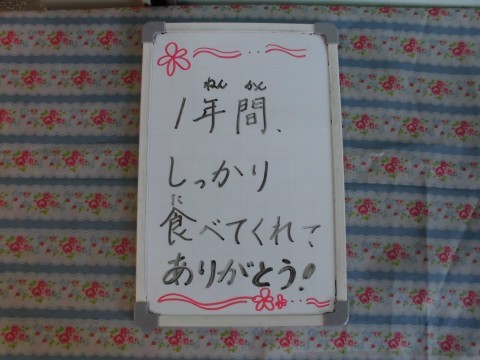 1年間、
ねん かん
しっかり
食べてくれて
ありがとう!